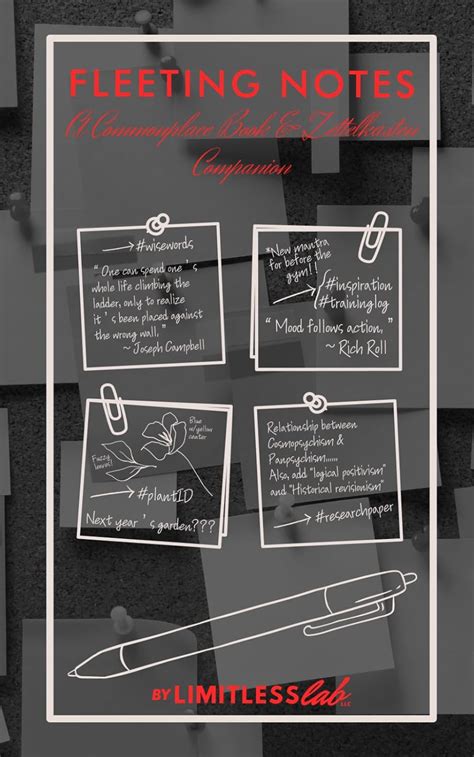 FLEETING NOTES
A Commonplace Book & Zettelkasten
Companion
#wisewords
"One can spend one's
whole life climbing the
ladder, only to realize
it's been placed against
the wrong wall."
~ Joseph Campbell
*New mantra
for before the
gym!!
#inspiration
#traininglog
"Mood follows action,"
~ Rich Roll
Blue
w/yellow
center
Fuzzy
leaves!
#plantID
Next year's garden???
Relationship between
Cosmopsychism &
Panpsychism......
Also, add "logical positivism"
and "Historical revisionism"
#researchpaper
BY LIMITLESS lab LLC